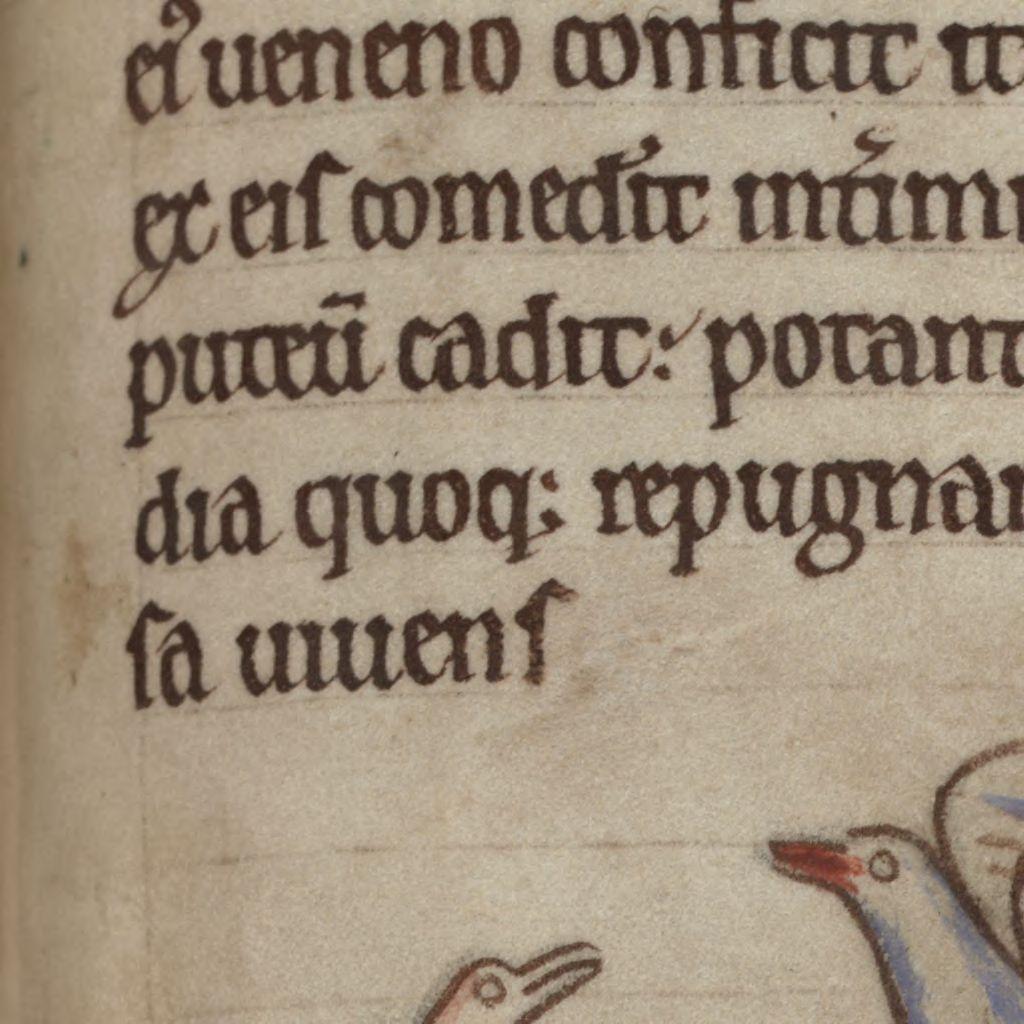 eiꝰ ueneno conficit it
ex eis comed᷑it int᷑imi
puteū cadit: potant
dia quoq: repugnan
sa uiuens